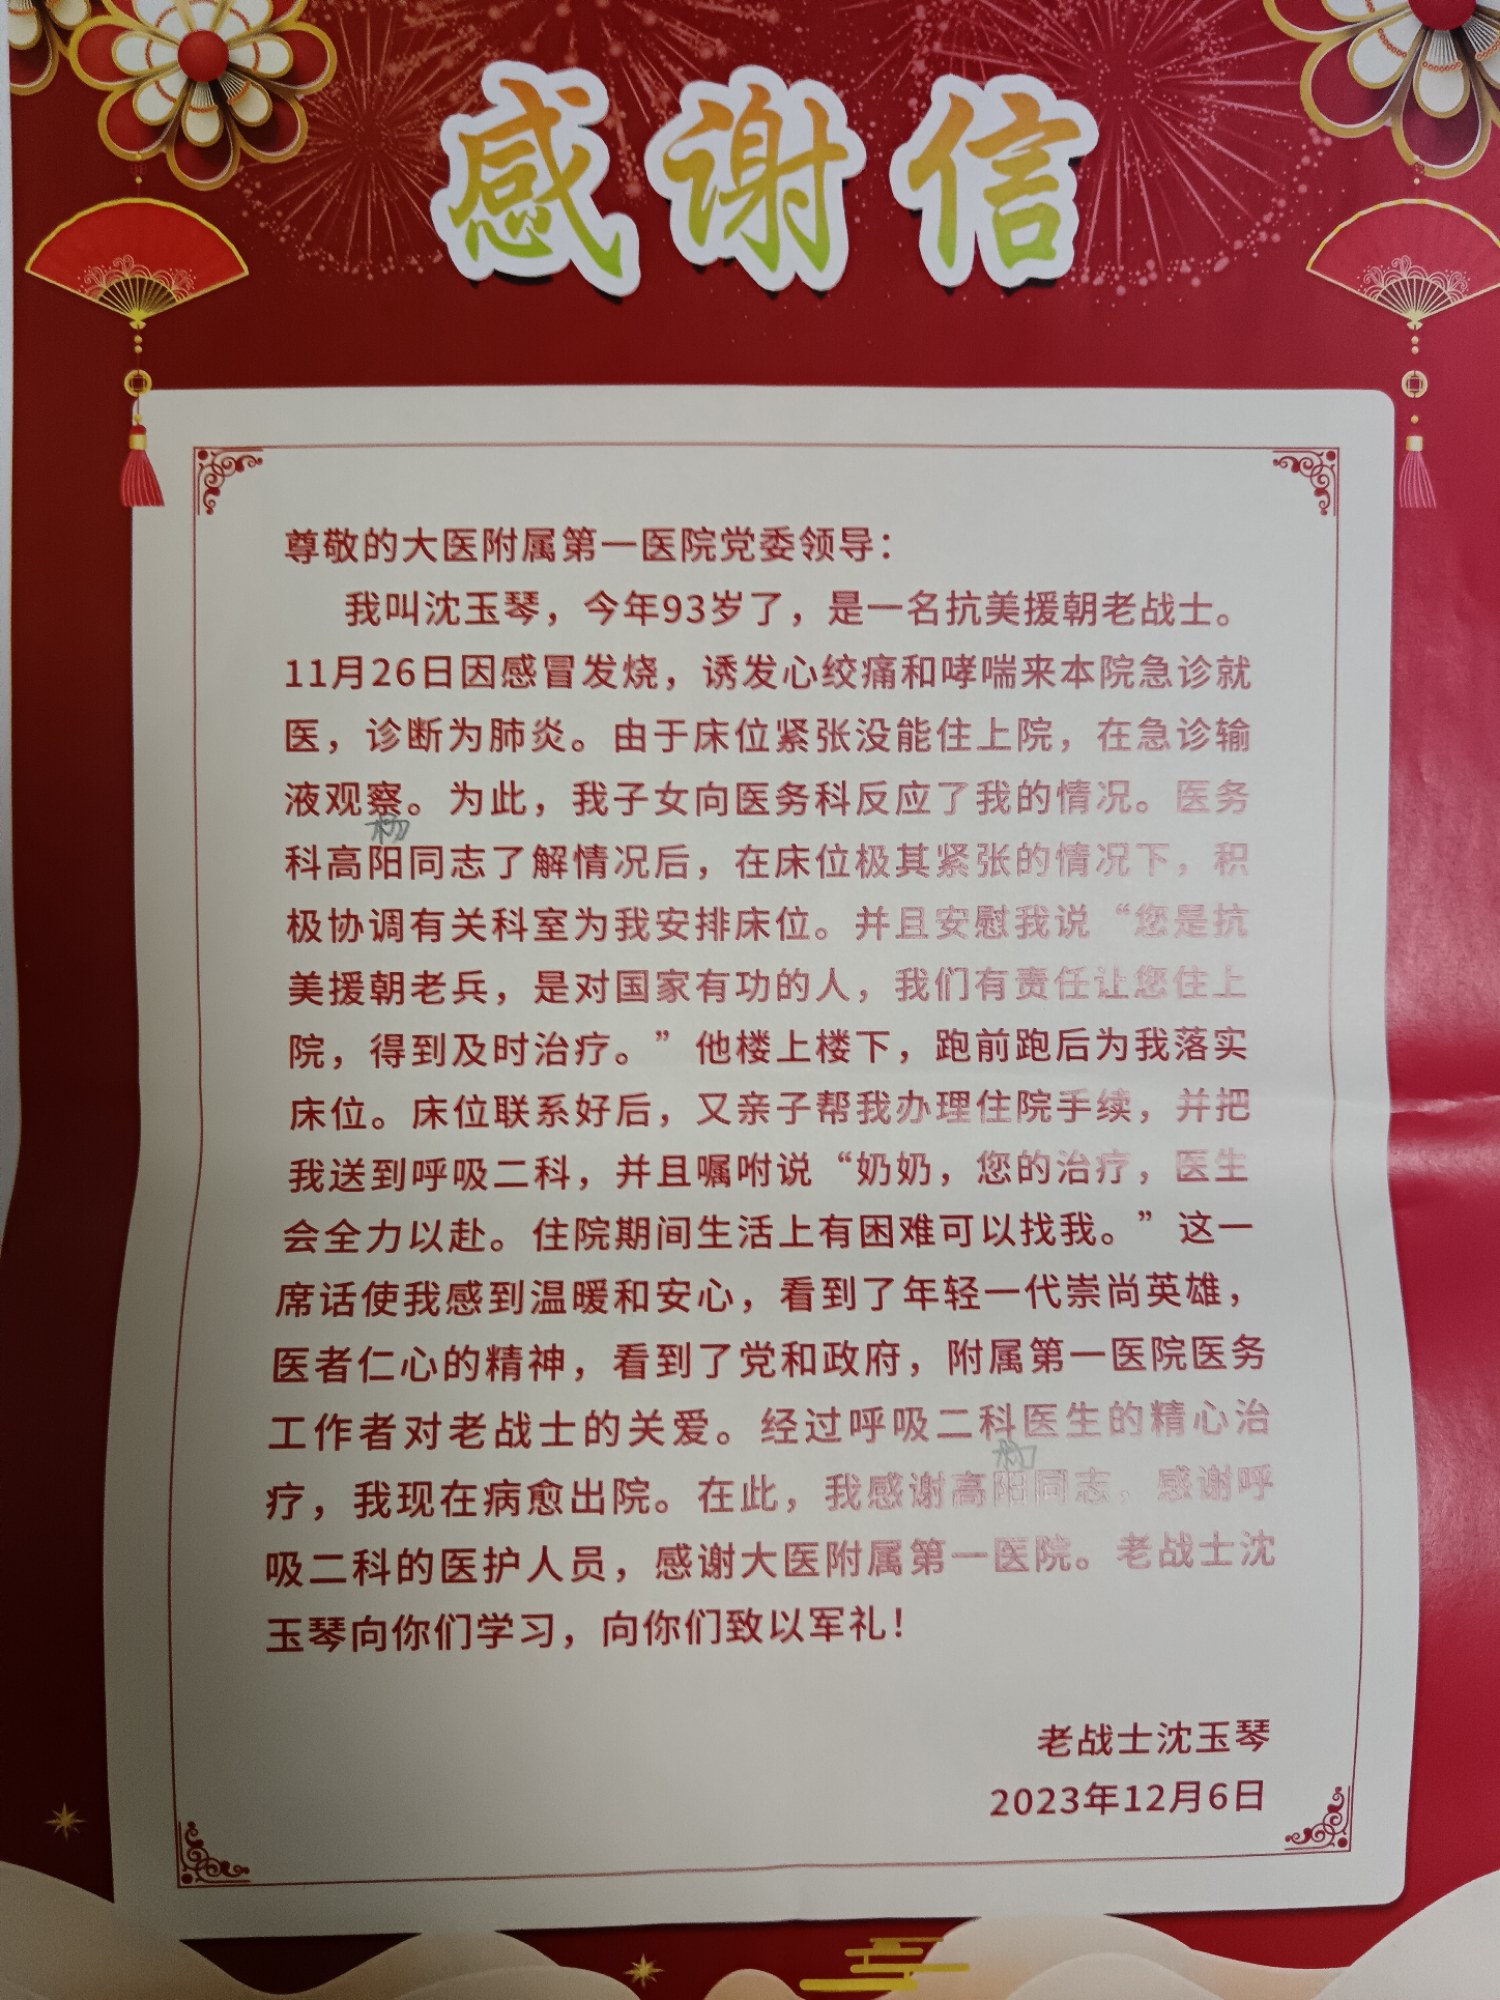 感谢信
尊敬的大医附属第一医院党委领导：
我叫沈玉琴，今年93岁了，是一名抗美援朝老战士。
11月26日因感冒发烧，诱发心绞痛和哮喘来本院急诊就
医，诊断为肺炎。由于床位紧张没能住上院，在急诊输
液观察。为此，我子女向医务科反应了我的情况。医务
杨
科高阳同志了解情况后，在床位极其紧张的情况下，积
极协调有关科室为我安排床位。并且安慰我说“您是抗
美援朝老兵，是对国家有功的人，我们有责任让您住上
院，得到及时治疗。”他楼上楼下，跑前跑后为我落实
床位。床位联系好后，又亲子帮我办理住院手续，并把
我送到呼吸二科，并且嘱咐说“奶奶，您的治疗，医生
会全力以赴。住院期间生活上有困难可以找我。”这一
席话使我感到温暖和安心，看到了年轻一代崇尚英雄，
医者仁心的精神，看到了党和政府，附属第一医院医务
工作者对老战士的关爱。经过呼吸二科医生的精心治
杨
疗，我现在病愈出院。在此，我感谢高阳同志，感谢呼
吸二科的医护人员，感谢大医附属第一医院。老战士沈
玉琴向你们学习，向你们致以军礼！
老战士沈玉琴
2023年12月6日